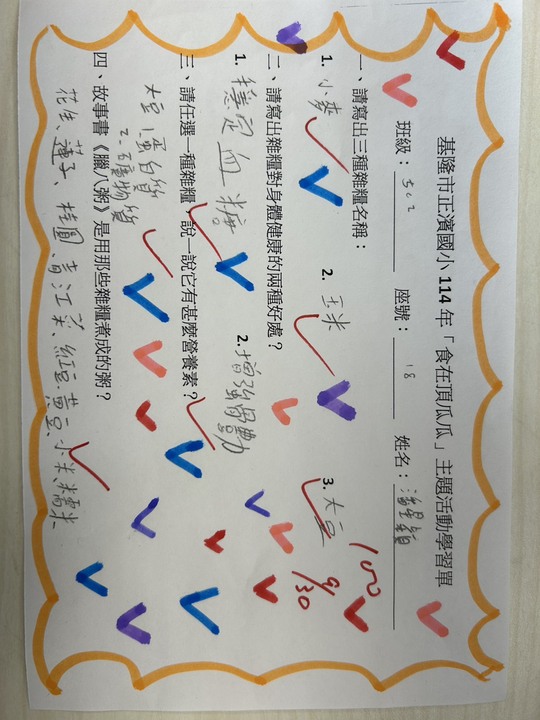 基隆市正濱國小 114 年「食在頂瓜瓜」主題活動學習單
班級：502 座號：18 姓名：
100
9/30
一、請寫出三種雜糧名稱：
1. 小麥 2. 玉米 3. 大豆
二、請寫出雜糧對身體健康的兩種好處？
1. 穩定血糖 2. 增強腸動
三、請任選一種雜糧，說一說它有甚麼營養素？
大豆 1蛋白質
2.礦物質
四、故事書《臘八粥》是用那些雜糧煮成的粥？
花生、蓮子、桂圓、青江米、紅豆、黃豆、小米、糯米